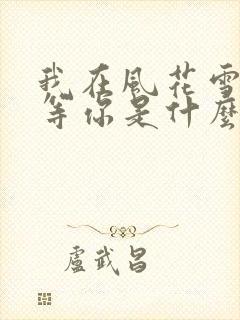 我在風花雪
等你是什麼
盧武昌